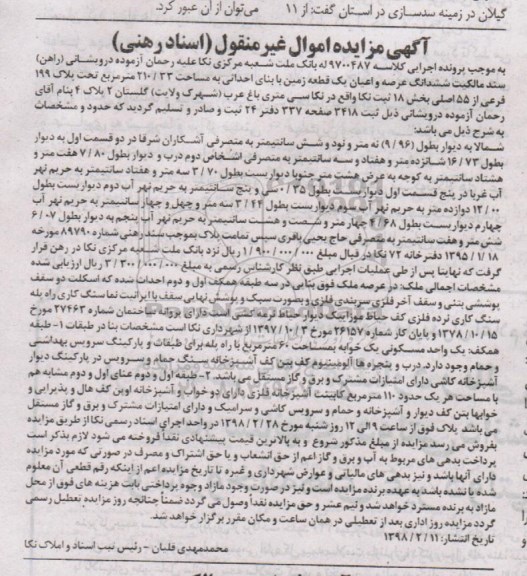 گیلان در زمینه سدسازی در استان گفت: از ۱۱
می‌توان از آن عبور کرد.
آگهی مزایده اموال غیر منقول (اسناد رهنی)
به موجب پرونده اجرایی کلاسه ۹۷۰۰۴۸۷ له بانک ملت شعبه مرکزی نکا علیه رحمان آزموده درویشانی (راهن)
سند مالکیت ششدانگ عرصه و اعیان یک قطعه زمین با بنای احداثی به مساحت ۲۱۰/۳۳ مترمربع تحت پلاک ۱۹۹
فرعی از ۵۵ اصلی بخش ۱۸ ثبت نکا واقع در نکا سی متری باغ عرب (شهرک ولایت) گلستان ۲ پلاک ۴ بنام آقای
رحمان آزموده درویشانی ذیل ثبت ۳۴۱۸ صفحه ۳۳۷ دفتر ۲۴ ثبت و صادر و تسلیم گردید که حدود و مشخصات
به شرح ذیل می باشد:
شمالا به دیوار بطول (۹/۹۶) نه متر و نود و شش سانتیمتر به متصرفی آشکاران شرقا در دو قسمت اول به دیوار
بطول ۱۶/۷۳ شانزده متر و هفتاد و سه سانتیمتر به متصرفی اشخاص دوم درب و دیوار بطول ۷/۸۰ هفت متر و
هشتاد سانتیمتر به کوچه به عرض هشت متر جنوبا دیواریست بطول ۳/۷۰ سه متر و هفتاد سانتیمتر به حریم نهر
آب غربا در پنج قسمت اول دیواریست بطول ۰/۳۵ سی و پنج سانتیمتر به حریم نهر آب دوم دیواریست بطول
۱۲/۰۰ دوازده متر به حریم نهر آب سوم دیواریست بطول ۳/۴۴ سه متر و چهل و چهار سانتیمتر به حریم نهر آب
چهارم دیواریست بطول ۴/۶۸ چهار متر و شصت و هشت سانتیمتر به حریم نهر آب پنجم به دیوار بطول ۶/۰۷
شش متر و هفت سانتیمتر به متصرفی حاج یحیی باقری سپس تمامت پلاک بموجب سند رهنی شماره ۸۹۷۹۰ مورخه
۱۳۹۵/۱/۱۸ دفترخانه ۷۲ نکا در قبال مبلغ ۱/۹۰۰/۰۰۰/۰۰۰ ریال نزد بانک ملت شعبه مرکزی نکا در رهن قرار
گرفت که نهایتا پس از طی عملیات اجرایی طبق نظر کارشناس رسمی به مبلغ ۳/۳۰۰/۰۰۰/۰۰۰ ریال ارزیابی شده
مشخصات اجمالی ملک: در عرصه ملک فوق بنایی در سه طبقه همکف اول و دوم احداث شده که اسکلت دو سقف
پوششی بتنی و سقف آخر فلزی سربندی فلزی و بصورت سبک و پوشش نهایی سقف با ایرانیت نما سنگ کاری راه پله
سنگ کاری نرده فلزی کف حیاط موزاییک دیوار حیاط نرمه کشی است دارای پروانه ساختمان شماره ۲۷۴۶۳ مورخ
۱۳۷۸/۱۰/۱۵ و پایان کار شماره ۲۶۱۵۷ مورخ ۱۳۹۷/۱۰/۳ از شهرداری نکا است مشخصات بنا در طبقات ۱- طبقه
همکف: یک واحد مسکونی یک خوابه بمساحت ۶۰ مترمربع با راه پله برای طبقات و پارکینگ سرویس بهداشتی
و حمام وجود دارد. درب و پنجره ها آلومینیوم کف بتن کف آشپزخانه سنگ حمام و سرویس در پارکینگ دیوار
آشپزخانه کاشی دارای امتیازات مشترک و برق و گاز مستقل می باشد. ۲- طبقه اول و دوم عنای اول و دوم مشابه هم
با مساحت هر یک حدود ۱۱۰ مترمربع کابینت آشپزخانه فلزی دارای دو خواب و آشپزخانه اوپن کف هال و پذیرایی و
خوابها بتن کف دیوار و آشپزخانه و حمام و سرویس کاشی و سرامیک و دارای امتیازات مشترک و برق و گاز مستقل
می باشد پلاک فوق از ساعت ۹ الی ۱۲ روز شنبه مورخ ۱۳۹۸/۲/۲۸ در واحد اجرای اسناد رسمی نکا از طریق مزایده
بفروش می رسد مزایده از مبلغ مذکور شروع و به بالاترین قیمت پیشنهادی نقدا فروخته می شود لازم بذکر است
پرداخت بدهی های مربوط به آب و برق و گاز اعم از حق انشعاب و یا حق اشتراک و مصرف در صورتی که مورد مزایده
دارای آنها باشد و نیز بدهی های مالیاتی و عوارض شهرداری و غیره تا تاریخ مزایده اعم از اینکه رقم قطعی آن معلوم
شده یا نشده باشد به عهده برنده مزایده است و نیز در صورت وجود مازاد وجوه پرداختی بابت هزینه های فوق از محل
مازاد به برنده مسترد خواهد شد و نیم عشر و حق مزایده نقدا وصول می گردد ضمناً چنانچه روز مزایده تعطیل رسمی
گردد مزایده روز اداری بعد از تعطیلی در همان ساعت و مکان مقرر برگزار خواهد شد.
تاریخ انتشار: ۱۳۹۸/۲/۱۱
محمدمهدی قلیان - رئیس ثبت اسناد و املاک نکا